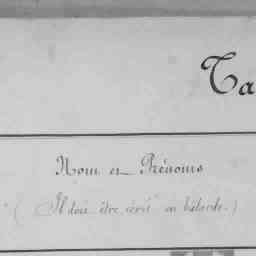 Ta
Nom et Prénoms
(Il doit être écrit en bâtarde.)